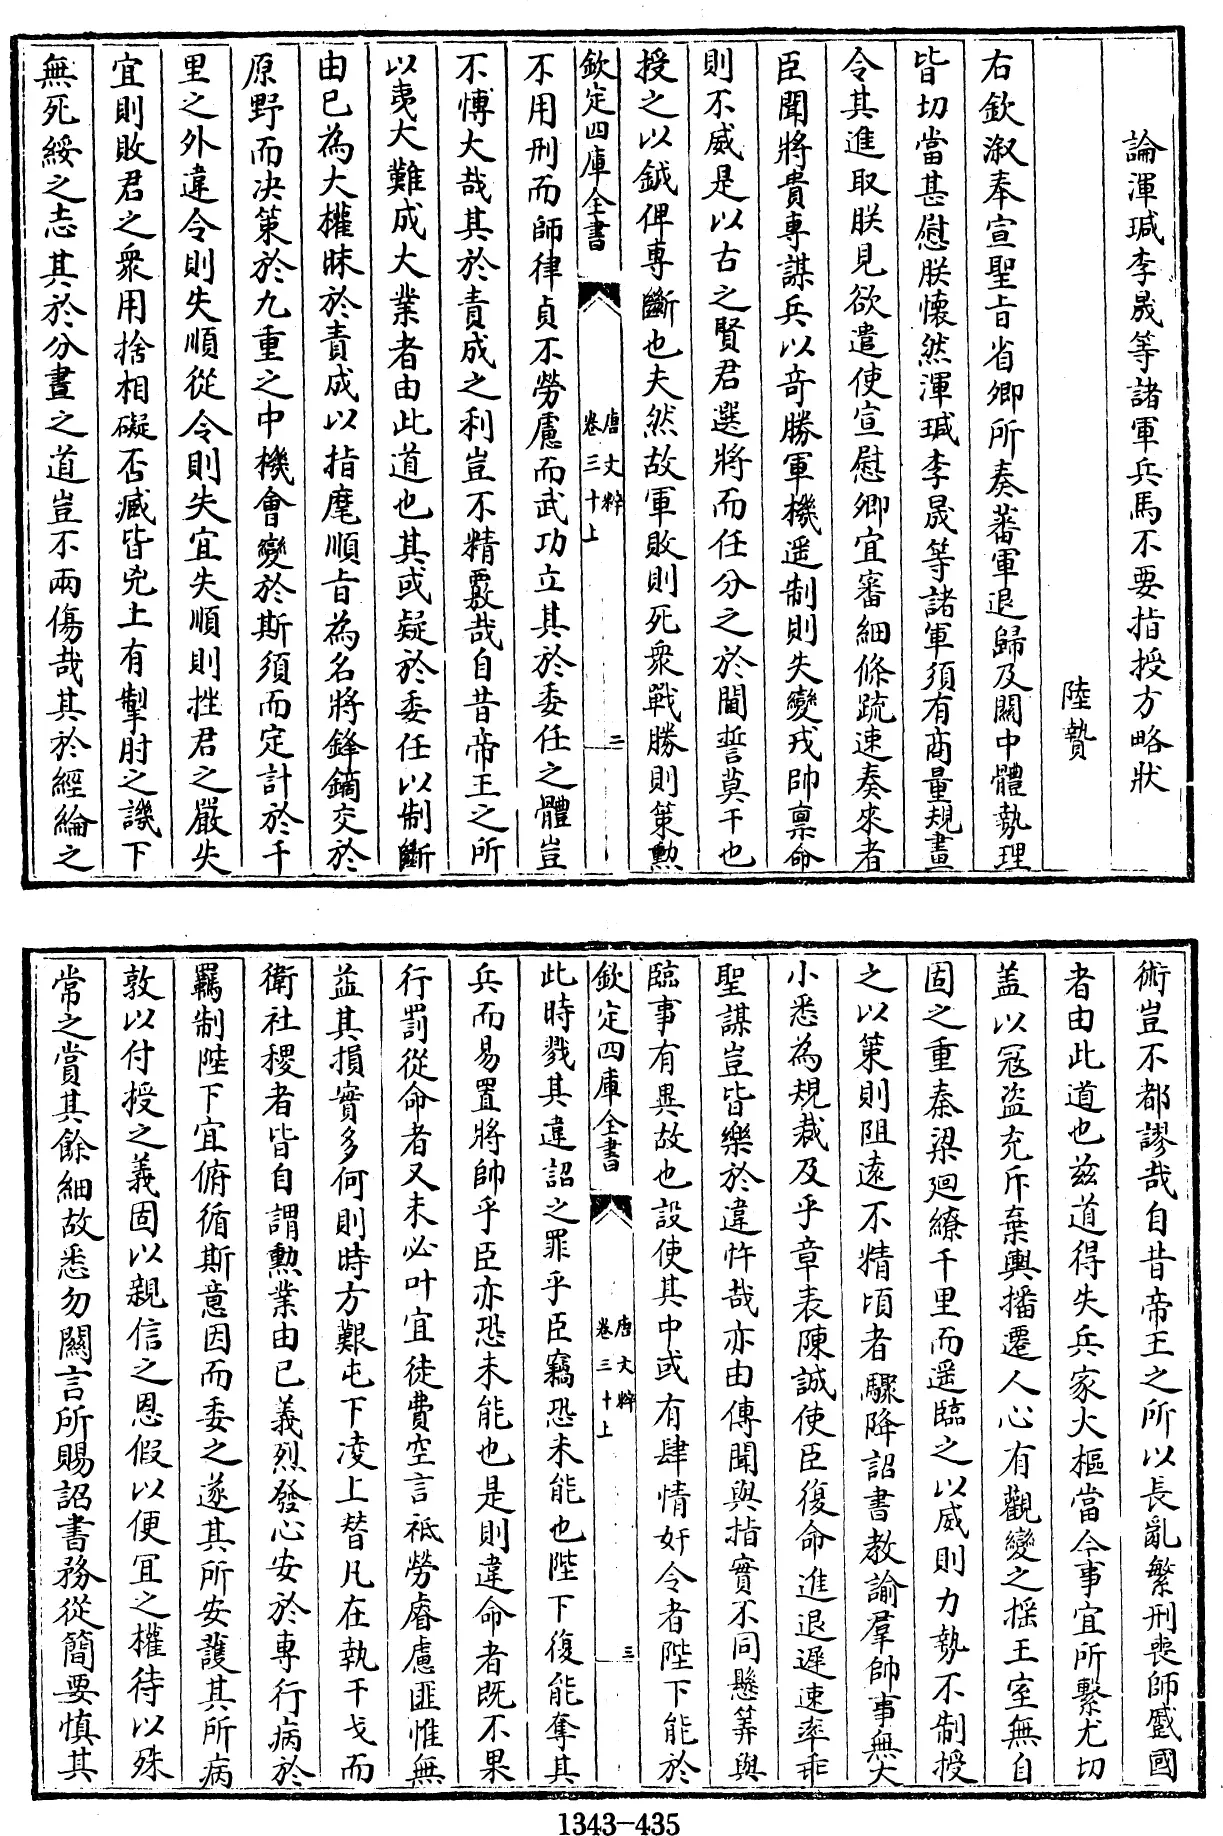 論渾瑊李晟等諸軍兵馬不要指授方略狀
陸贄
右欽溆奉宣聖旨省卿所奏蕃軍退歸及關中體勢理
皆切當甚慰朕懷然渾瑊李晟等諸軍須有商量規畫
令其進取朕見欲遣使宣慰卿宜審細條疏速奏來者
臣聞將貴專謀兵以奇勝軍機遥制則失變戎帥禀命
則不威是以古之賢君選將而任分之於閫誓莫干也
授之以鉞俾專斷也夫然故軍敗則死衆戰勝則策勲
欽定四庫全書
唐文粹
卷三十上
二
不用刑而師律貞不勞慮而武功立其於委任之體豈
不愽大哉其於責成之利豈不精覈哉自昔帝王之所
以夷大難成大業者由此道也其或疑於委任以制斷
由已為大權昧於責成以指麾順旨為名將鋒鏑交於
原野而决策於九重之中機會變於斯須而定計於千
里之外違令則失順從令則失宜失順則挫君之嚴失
宜則敗君之衆用捨相礙否臧皆兇上有掣肘之譏下
無死綏之志其於分畫之道豈不兩傷哉其於經綸之
術豈不都謬哉自昔帝王之所以長亂繁刑喪師蹙國
者由此道也兹道得失兵家大樞當今事宜所繫尤切
盖以冦盜充斥棄輿播遷人心有觀變之揺王室無自
固之重秦梁廻繚千里而遥臨之以威則力勢不制授
之以策則阻遠不精頃者驟降詔書教諭羣帥事無大
小悉為規裁及乎章表陳誠使臣復命進退遲速率乖
聖謀豈皆樂於違忤哉亦由傳聞與指實不同懸筭與
臨事有異故也設使其中或有肆情奸令者陛下能於
欽定四庫全書
唐文粹
卷三十上
三
此時戮其違詔之罪乎臣竊恐未能也陛下復能奪其
兵而易置將帥乎臣亦恐未能也是則違命者既不果
行罰從命者又未必叶宜徒費空言祗勞睿慮匪惟無
益其損實多何則時方艱屯下凌上替凡在執干戈而
衛社稷者皆自謂勲業由已義烈發心安於專行病於
羈制陛下宜俯循斯意因而委之遂其所安護其所病
敦以付授之義固以親信之恩假以便宜之權待以殊
常之賞其餘細故悉勿關言所賜詔書務從簡要慎其
1343-435